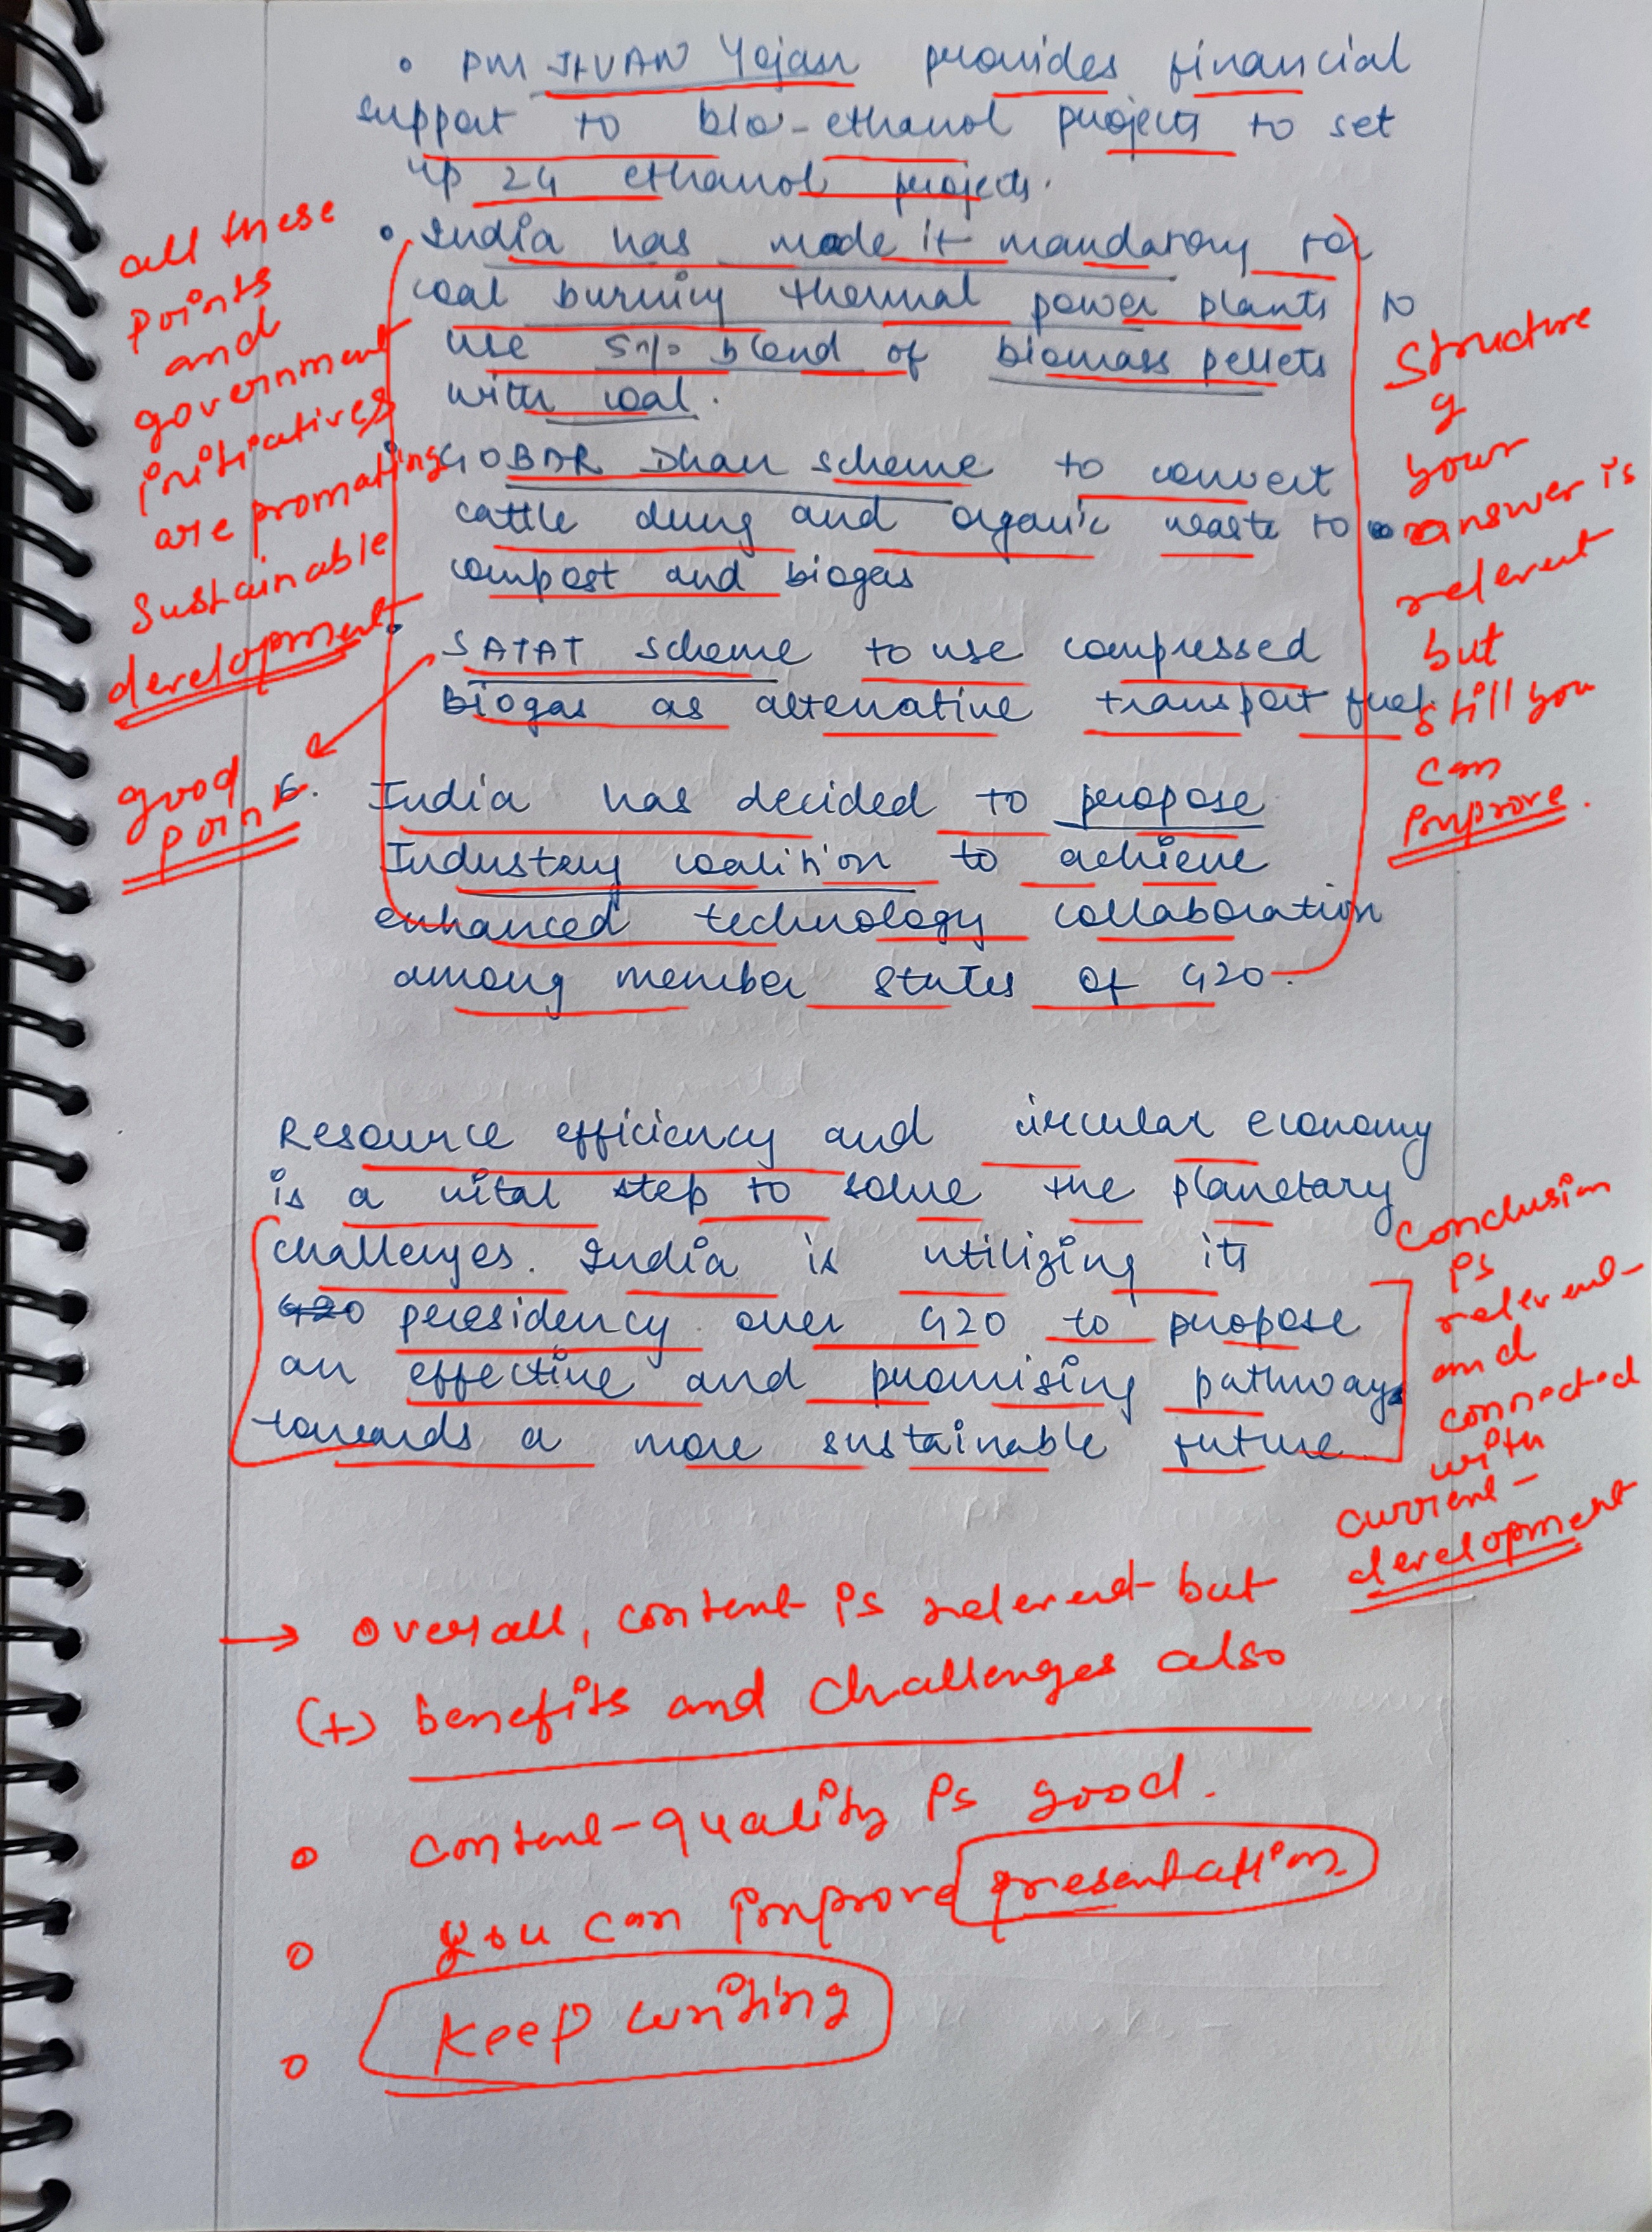 • PM JIVAN Yojan provides financial
support to bio-ethanol projects to set
up 24 ethanol projects.
• India has made it mandatory for
coal burning thermal power plants to
use 5% blend of biomass pellets
with coal.
GOBAR Dhan scheme to convert
cattle dung and organic waste to
compost and biogas
• SATAT scheme to use compressed
Biogas as alternative transport fuel.
6. India has decided to propose
Industry coalition to achieve
enhanced technology collaboration
among member states of G20.
all these
points
and
government
initiatives
are promoting
sustainable
development
good
point
structure
of
your
answer is
relevent
but
still you
can
improve.
Resource efficiency and circular economy
is a vital step to solve the planetary
challenges. India is utilizing its
presidency over G20 to propose
an effective and promising pathway
towards a more sustainable future.
conclusion
is
relevent
and
connected
with
current
development
→ Overall, content is relevent but
(+) benefits and challenges also
o content-quality is good.
o you can improve presentation
o Keep writing